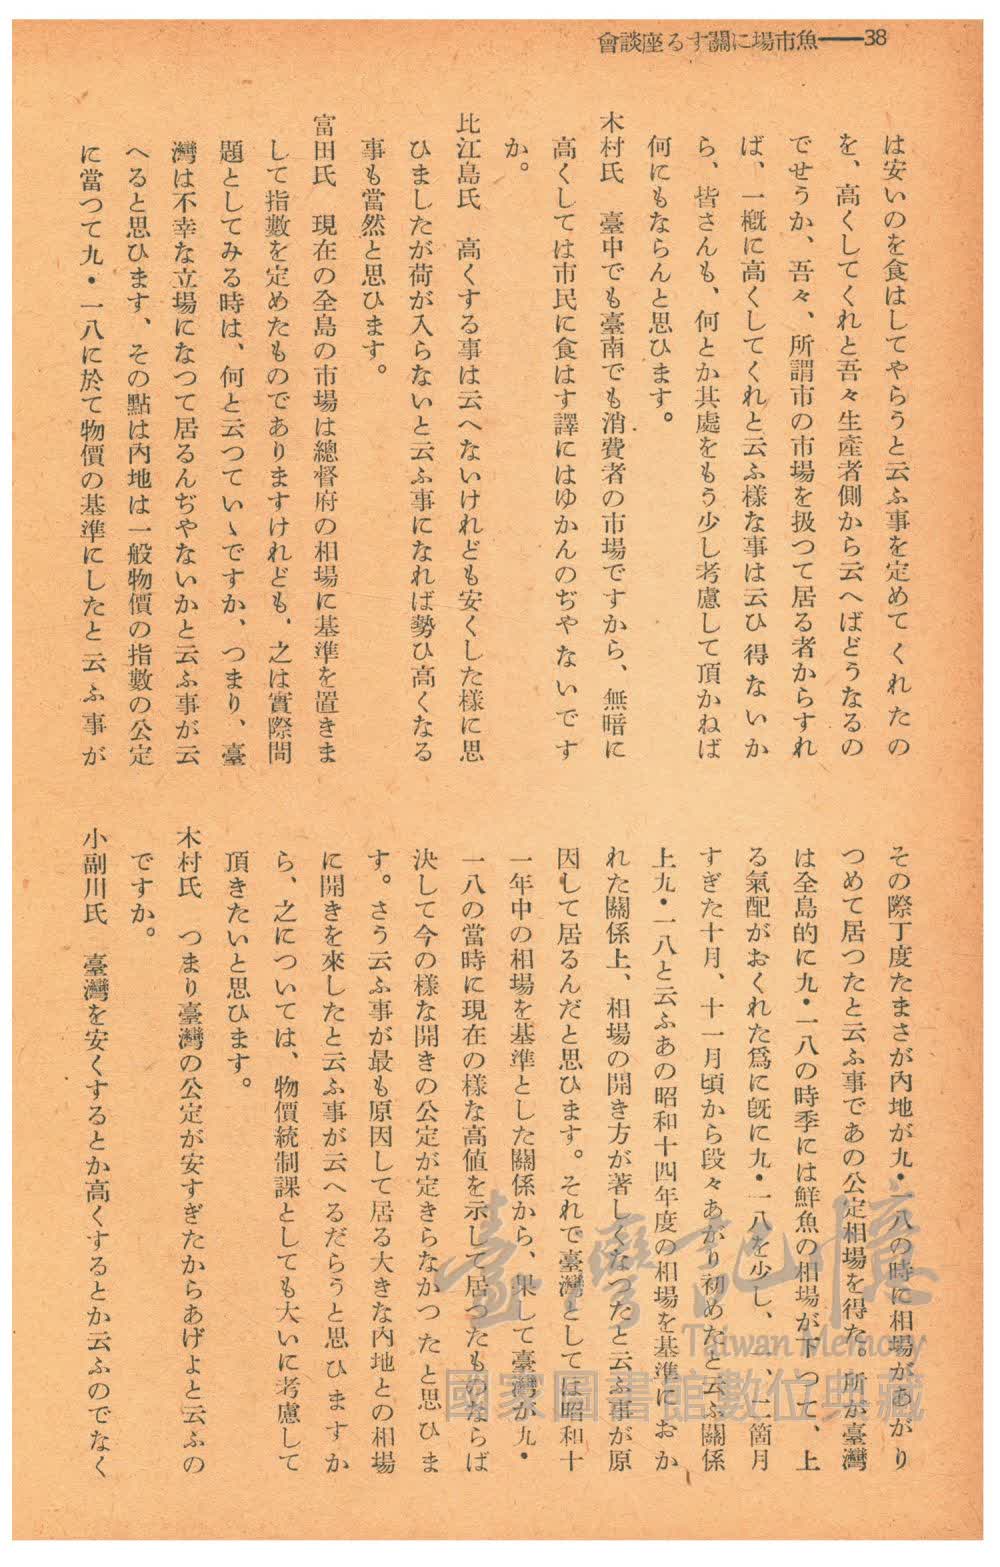 會談座るす關に場市魚――38
は安いのを食はしてやらうと云ふ事を定めてくれたの
を、高くしてくれと吾々生產者側から云へばどうなるの
でせうか、吾々、所謂市の市場を扱つて居る者からすれ
ば、一槪に高くしてくれと云ふ樣な事は云ひ得ないか
ら、皆さんも、何とか其處をもう少し考慮して頂かねば
何にもならんと思ひます。
木村氏　臺中でも臺南でも消費者の市場ですから、無暗に
高くしては市民に食はす譯にはゆかんのぢやないです
か。
比江島氏　高くする事は云へないけれども安くした樣に思
ひましたが荷が入らないと云ふ事になれば勢ひ高くなる
事も當然と思ひます。
富田氏　現在の全島の市場は總督府の相場に基準を置きま
して指數を定めたものでありますけれども、之は實際問
題としてみる時は、何と云つていゝですか、つまり、臺
灣は不幸な立場になつて居るんぢやないかと云ふ事が云
へると思ひます、その點は內地は一般物價の指數の公定
に當つて九・一八に於て物價の基準にしたと云ふ事が
その際丁度たまさが內地が九・一八の時に相場があがり
つめて居つたと云ふ事であの公定相場を得た。所が臺灣
は全島的に九・一八の時季には鮮魚の相場が下つて、上
る氣配がおくれた爲に旣に九・一八を少し、一、二箇月
すぎた十月、十一月頃から段々あがり初めたと云ふ關係
上九・一八と云ふあの昭和十四年度の相場を基準におか
れた關係上、相場の開き方が著しくなつたと云ふ事が原
因して居るんだと思ひます。それで臺灣としては昭和十
一年中の相場を基準とした關係から、果して臺灣が九・
一八の當時に現在の樣な高値を示して居つたものならば
決して今の樣な開きの公定が定きらなかつたと思ひま
す。さう云ふ事が最も原因して居る大きな內地との相場
に開きを來したと云ふ事が云へるだらうと思ひますか
ら、之については、物價統制課としても大いに考慮して
頂きたいと思ひます。
木村氏　つまり臺灣の公定が安すぎたからあげよと云ふの
ですか。
小副川氏　臺灣を安くするとか高くするとか云ふのでなく
臺灣記憶
Taiwan Memory
國家圖書館數位典藏